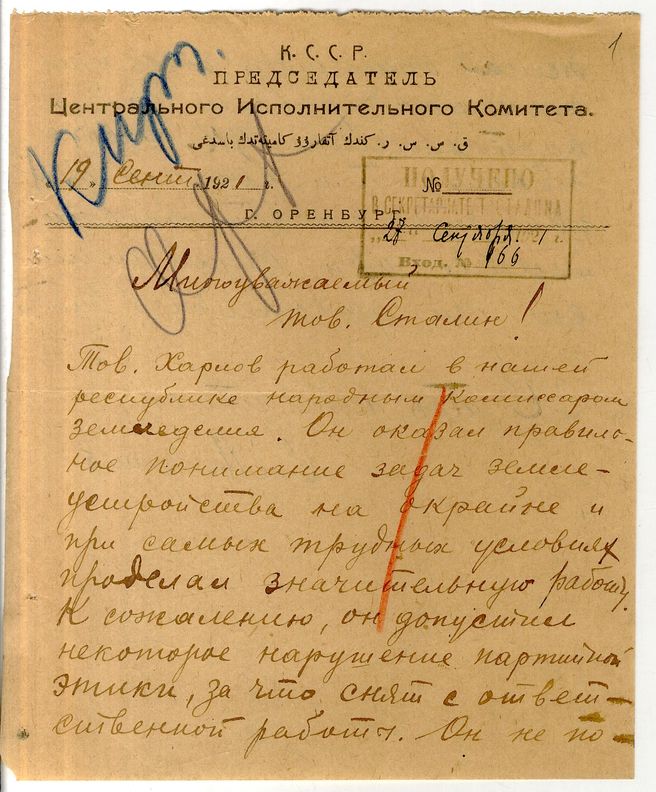 1
К. С. С. Р.
ПРЕДСЕДАТЕЛЬ
Центрального Исполнительного Комитета.
ق. س. س. ر. كندك
Кирг.
„19" Сент 1921 г. №
г. ОРЕНБУРГ
ПОЛУЧЕНО
В СЕКРЕТАРИАТЕ Т. СТАЛИНА
27 Сентября 1 г.
Вход. № 166
Многоуважаемый
тов. Сталин!
Тов. Харлов работал в нашей
республике народным комиссаром
земледелия. Он оказал правиль-
ное понимание задач земле-
устройства на окрайне и
при самых трудных условиях
проделал значительную работу.
К сожалению, он допустил
некоторое нарушение партийной
этики, за что снят с ответ-
ственной работы. Он не по-